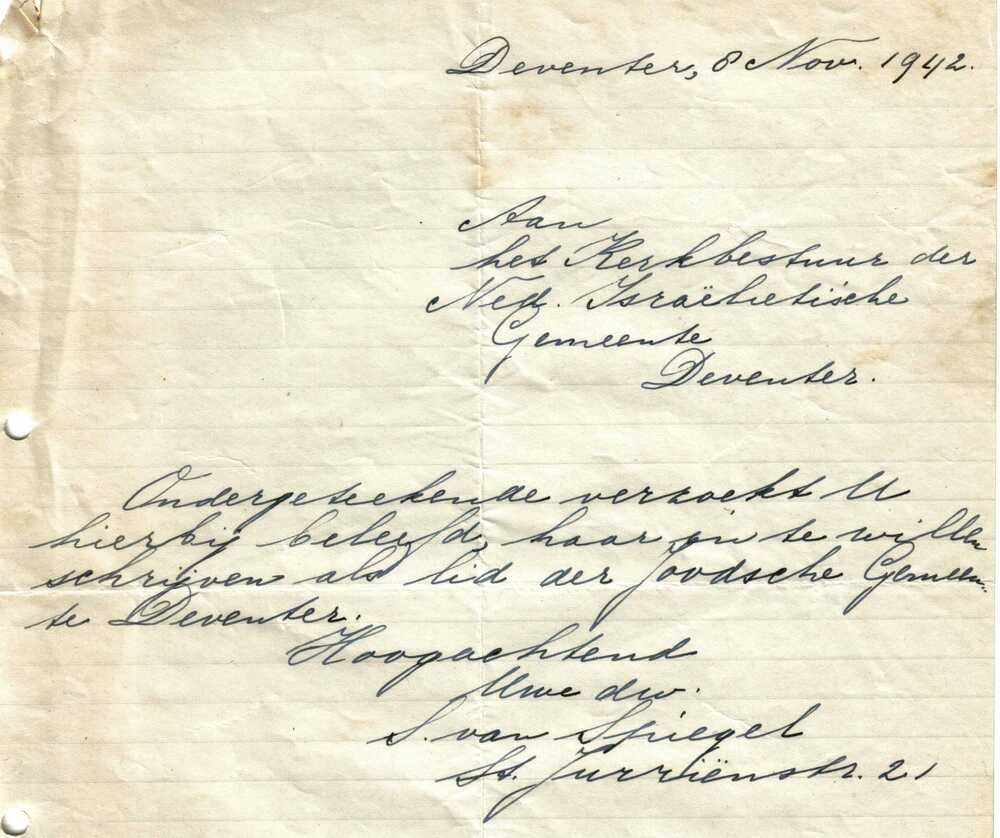 Deventer, 8 Nov. 1942.
Aan
het Kerkbestuur der
Ned. Israëlietische
Gemeente
Deventer.
Ondergeteekende verzoekt U
hierbij beleefd, haar in te willen
schrijven als lid der Joodsche Gemeen-
te Deventer.
Hoogachtend
Uwe dw.
S. van Spiegel
St. Jurriënstr. 21